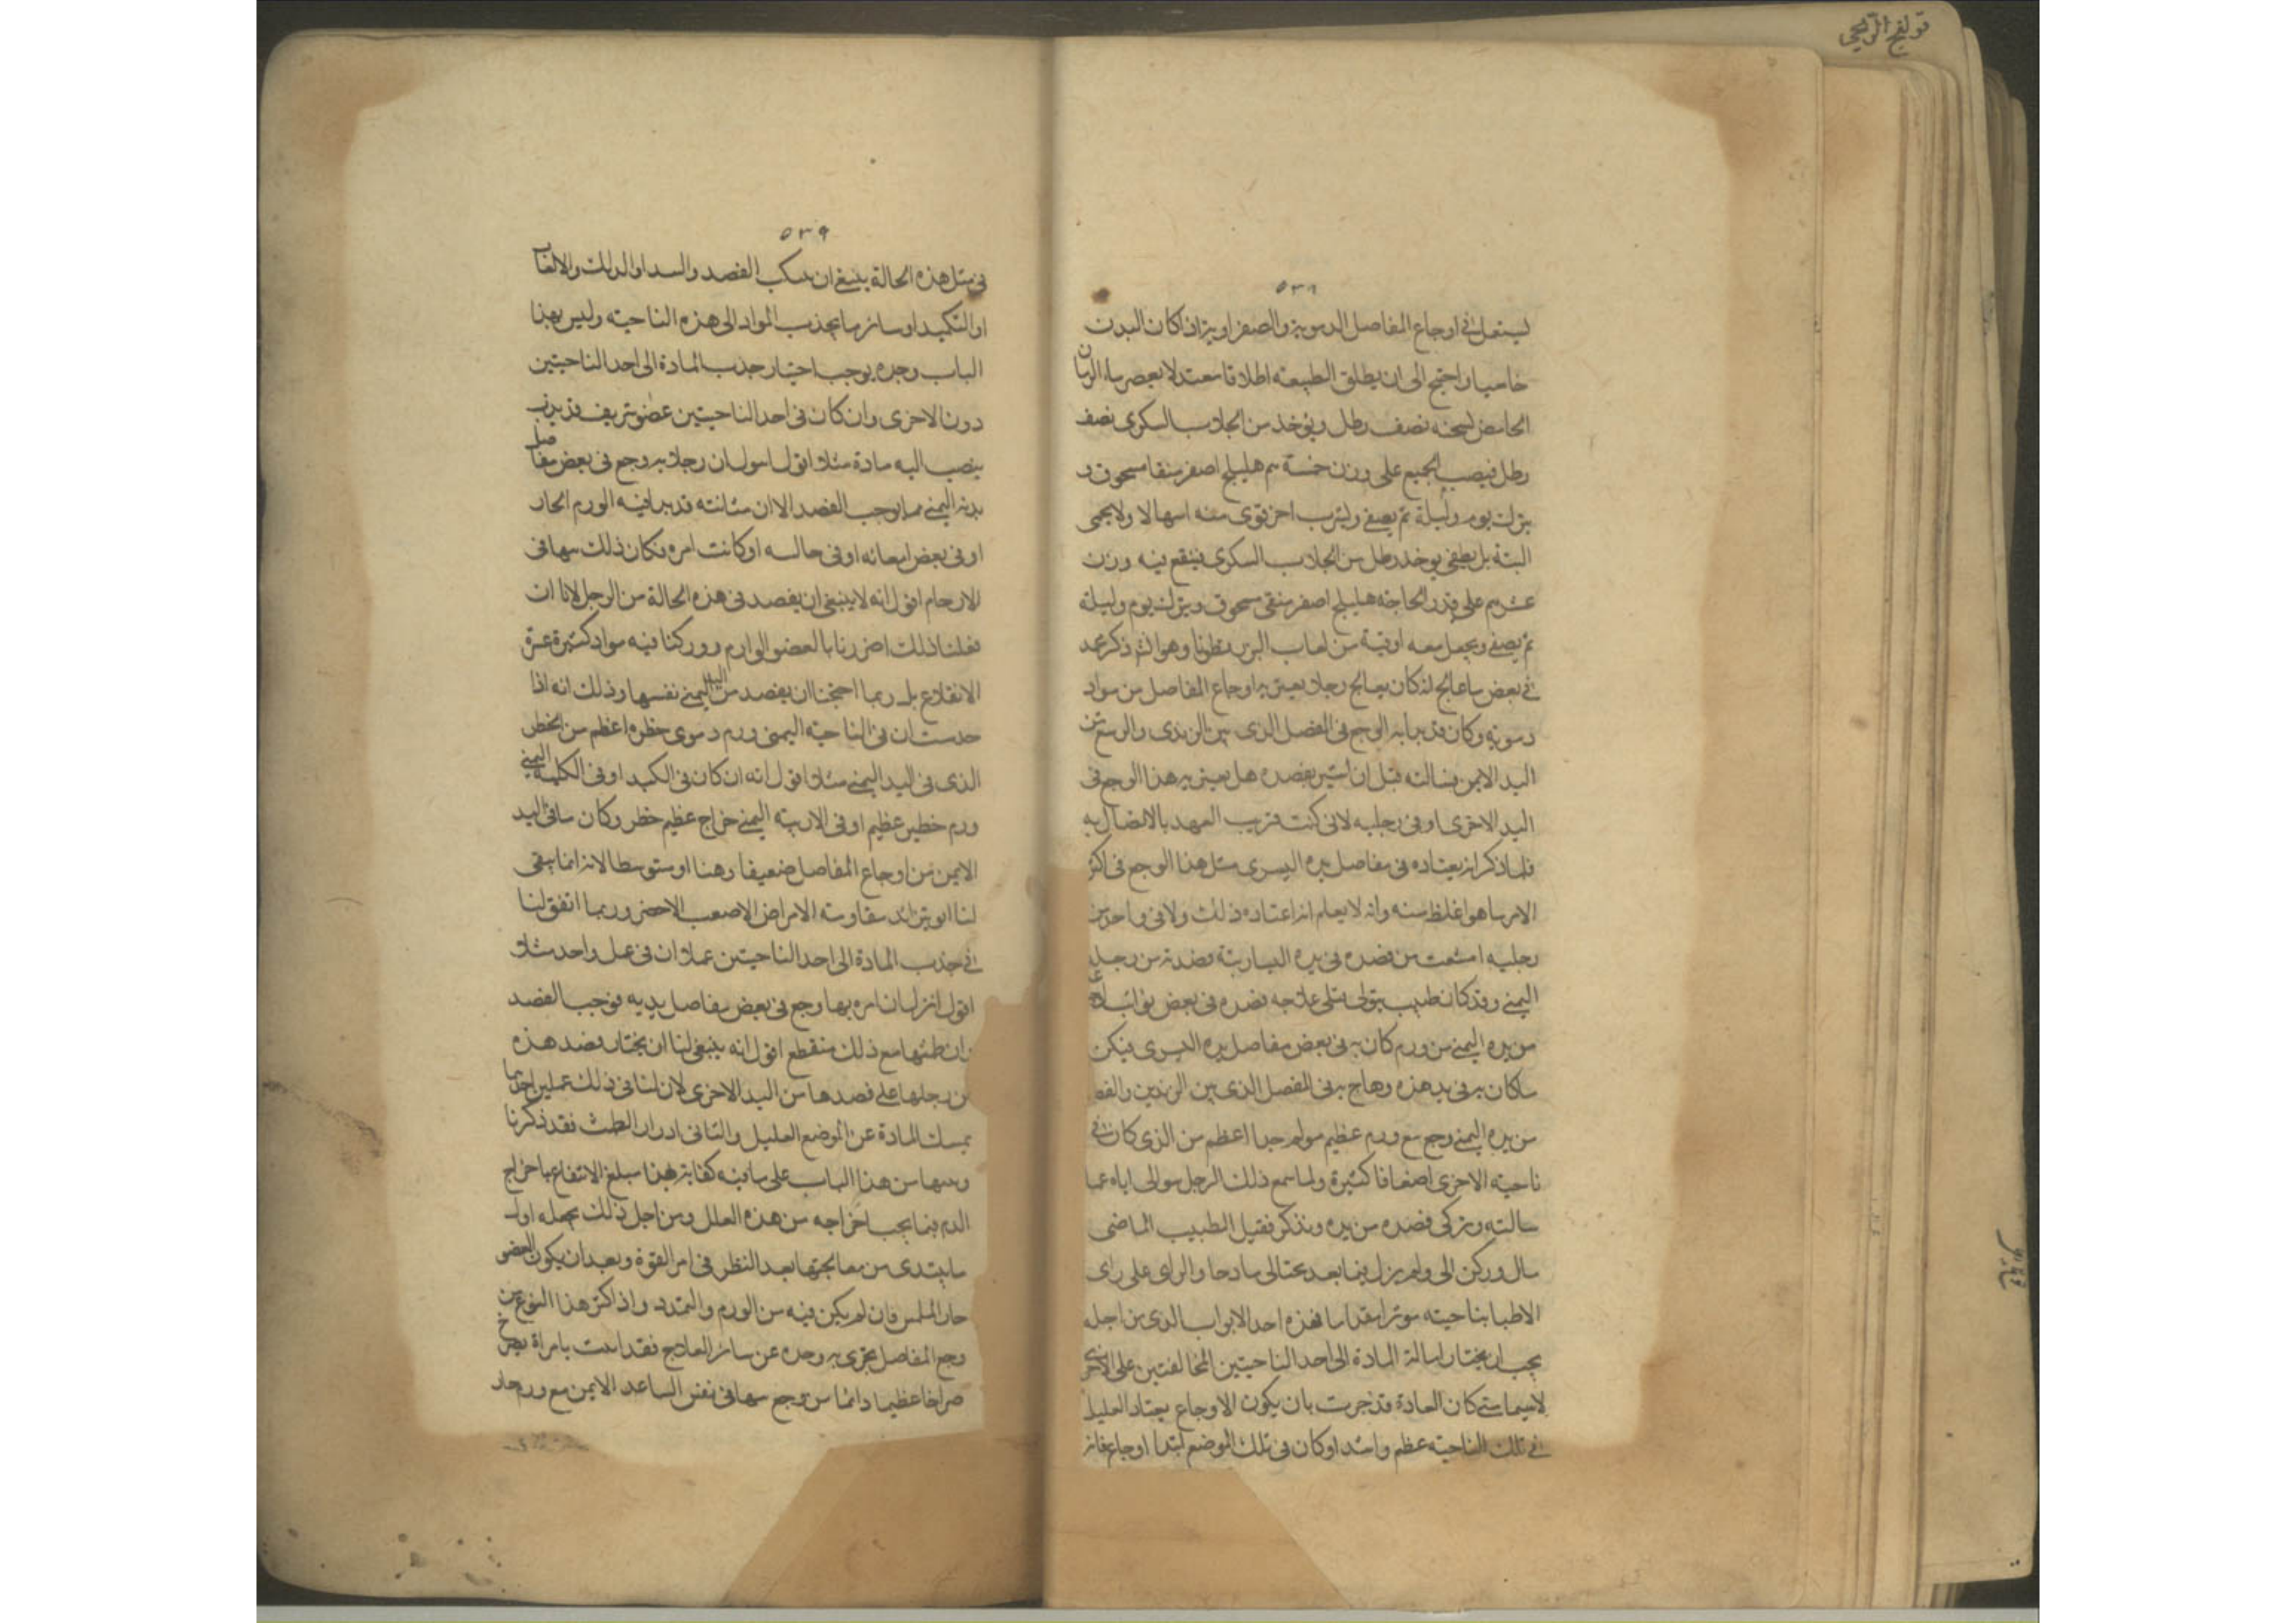 قولنج الريحي
٥٣٨
ليستعمل في اوجاع المفاصل الدموية والصفراوية اذا كان البدن
خاميا واحتج الى ان يطلق الطبيعة اطلاقا معتدلا يعصر ماء الرمان
الحامض لشحمه نصف رطل ويؤخذ من الجلاب السكرى نصف
رطل فيصب الجميع على وزن خمسة هم هليلج اصفر منقا مسحوق و
يترك يوم وليلة ثم يصفى ويشرب اخر اقوى منه اسهالا ولا يحمى
البتة بل يطفى يوخذ رطل من الجلاب السكرى فينقع فيه وزن
على قدر الحاجة هليلج اصفر منقى مسحوق ويترك يوم وليلة
ثم يصفى ويجعل معه اوقية من لعاب البزرقطونا وهو الذى ذكر محمد
في بعض ما عالج انه كان يعالج رجلا يعتريه اوجاع المفاصل من مواد
دموية وكان قد بدا به الوجع فى المفصل الذى بين الزندى والرسغ من
اليد الايمن فسالته قبل ان اشير بفصده هل يعتريه هذا الوجع فى
اليد الاخرى او فى رجليه لانى كنت قريب العهد بالاتصال به
فلما ذكر انه يعتاده فى مفاصل يده اليسرى مثل هذا الوجع فى اكثر
الامر ما هو اغلظ منه وانه لا يعلم انه اعتاده ذلك ولا فى واحد من
رجليه امتنعت من فصده فى يده اليسارية فصدته من رجله
اليمنى وقد كان طبيب يتولى قبلى علاجه فصده فى بعض نوائب
من يده اليمنى من ورم كان به فى بعض مفاصل يده اليسرى فيكن
ما كان به فى يد هذه وهاج به فى المفصل الذى بين الزندين والفصـ
من يده اليمنى وجع مع ورم عظيم مولم جدا اعظم من الذى كان فى
ناحيته الاخرى اضعافا كثيرة ولما سمع ذلك الرجل سوالى اياه عما
سالته وتركى فصده من يده وتذكر فقيل الطبيب الماضى
مال وركن الى ولم يزل فيما بعد محتالى مادحا والراى على راى
الاطبا بناحيته موثرا مقداما فهذه احد الابواب الذى من اجله
يجب ان يختار امالة المادة الى احد الناحيتين المخالفتين على الاخرى
لا سيما متى كان العادة قد جرت بان يكون الاوجاع يعتاد العليل
فى تلك الناحية عظم واشد او كان فى تلك الموضع ابتدا اوجاع فان
٥٣٩
فى مثل هذه الحالة ينبغى ان الفصد والالعاب
او التكميد او سائر ما يجذب المواد الى هذه الناحية وليس بهذا
الباب وحده يوجب اختيار جذب المادة الى احد الناحيتين
دون الاخرى وان كان فى احد الناحيتين عضو شريف قد بدت
ينصب اليه مادة مثلا اقول ان رجلا به وجع فى بعض مفاصل
بدنه اليمنى مما يوجب الفصد الا ان مثانته قد بدا فيه الورم الحار
او فى بعض امعائه او فى حالبه او كانت امره فكان ذلك بها فى
الارحام اقول انه لا ينبغى ان يفصد فى هذه الحالة من الرجل لانا ان
فعلنا ذلك اضررنا بالعضو الوارم وركنا فيه مواد كثيرة عسرة
الانقلاع بل ربما احتجنا ان يفصد من اليد اليمنى نفسها وذلك انه اذا
حدست ان فى الناحية اليمنى ورم دموى خطره اعظم من الخطر
الذى فى اليد اليمنى مثلا اقول انه ان كان فى الكبد او فى الكلية اليمنى
ورم خطير عظيم او فى الاربية اليمنى خراج عظيم خطر وكان ما فى اليد
الايمن من اوجاع المفاصل ضعيفا وهنا او متوسطا لانه انما يبقى
لنا ابو يتزائد مقاومة الامراض الاصعب الاحضر وربما اتفق لنا
فى جذب المادة الى احد الناحيتين عملان فى عمل واحد مثلا
اقول انزل ان امره بها وجع فى بعض مفاصل يديه فوجب الفصد
وان طمثها مع ذلك منقطع اقول انه ينبغى لنا ان يختار فصد هذه
من رجلها على فصدها من اليد الاخرى لان لنا فى ذلك عملين احدهما
يمسك المادة عن الموضع العليل والثانى ادرار الطمث فقد ذكرنا
من هذا الباب على ما فيه كفاية فهذا مبلغ الانتفاع باخراج
الدم فيما يجب اخراجه من هذه العلل ومن اجل ذلك يجعله اول
ما يبتدى من معالجتها بعد النظر فى امر القوة وبعد ان يكون العضو
حار الملمس فان لم يكن فيه من الورم والتمدد واذ اكثر هذا النوع من
وجع المفاصل يجزى به وحده عن سائر العلاج فقد ابامراة تصرخ
صراخا عظيما دائما من وجع بها فى نفس الساعد الايمن مع ورم حار